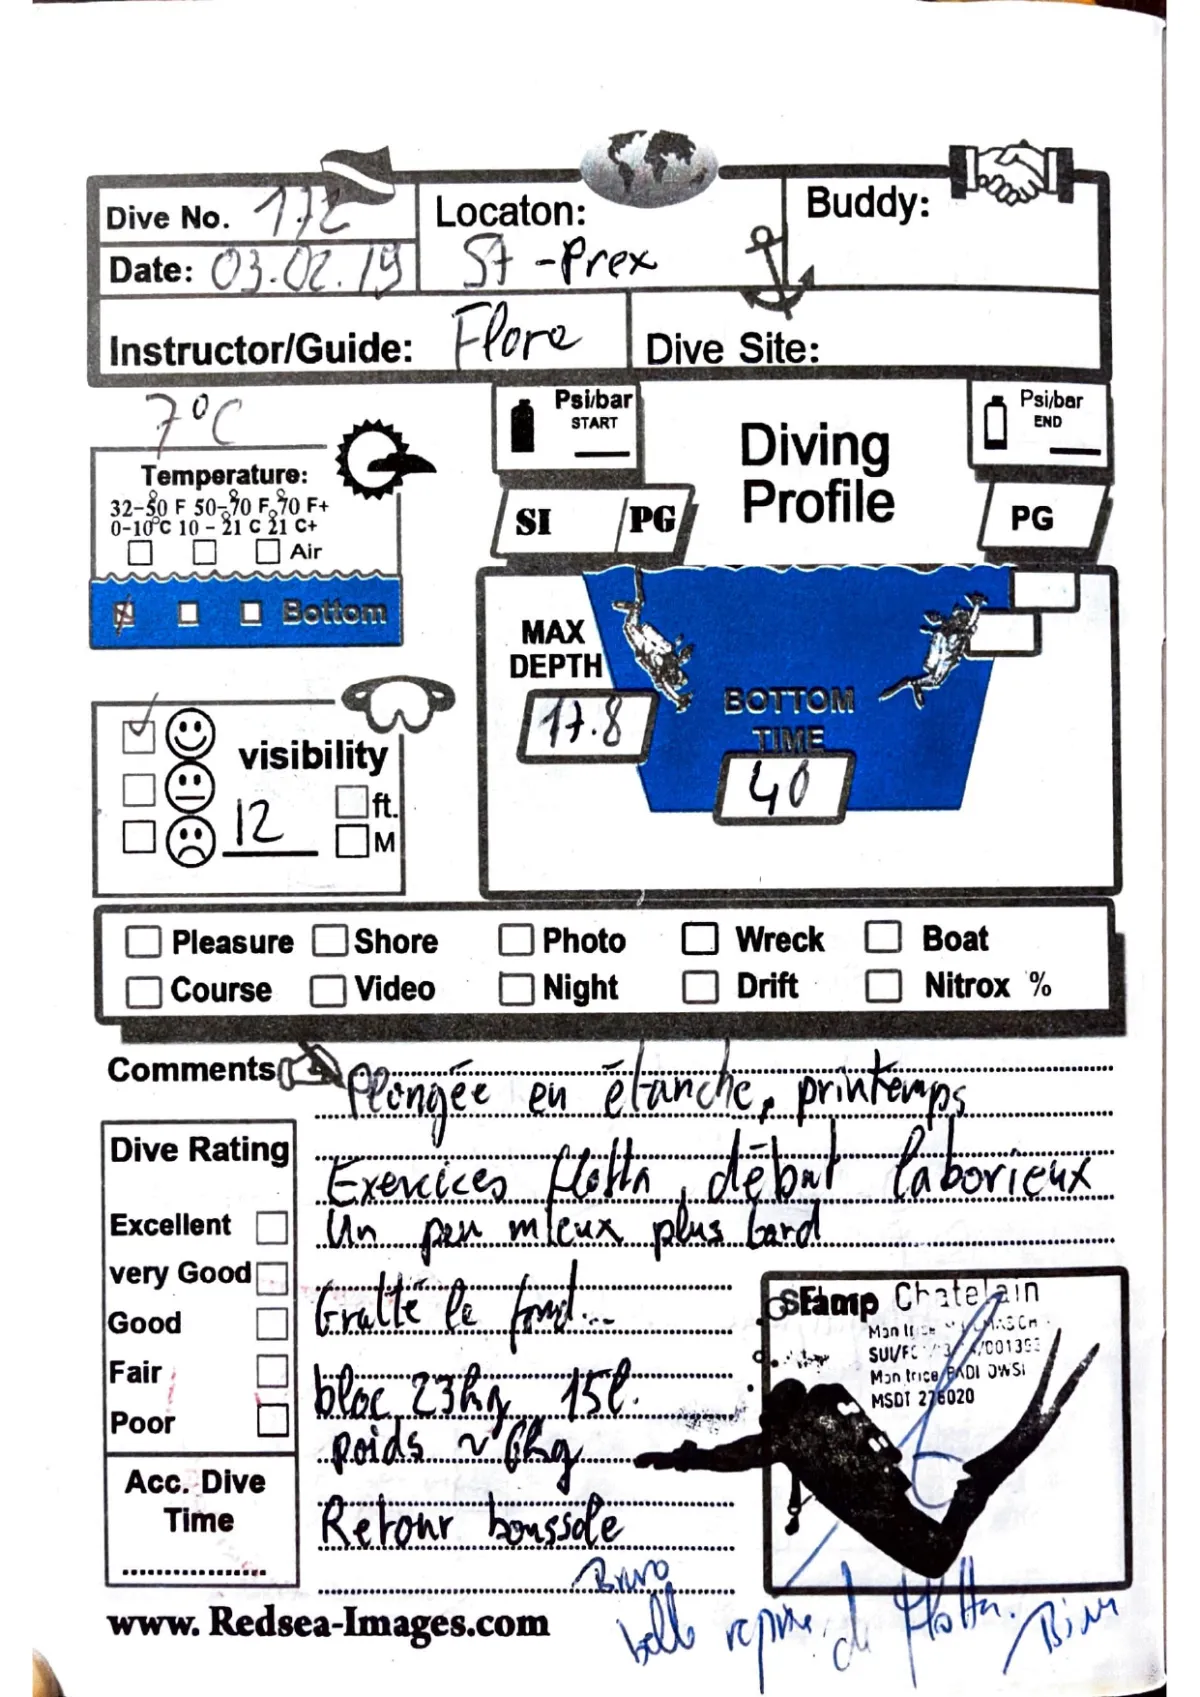 Dive No. 172
Date: 03.02.19
Locaton:
St-Prex
Buddy:
Instructor/Guide: Flore
Dive Site:
7°C
Temperature:
32-50 F 50-70 F 70 F+
0-10°C 10 - 21 C 21 C+
Air
Bottom
visibility
12
ft.
M
Psi/bar
START
SI / PG
Diving
Profile
Psi/bar
END
PG
MAX
DEPTH
17.8
BOTTOM
TIME
40
Pleasure Shore Photo Wreck Boat
Course Video Night Drift Nitrox %
Comments
Plongée en étanche, printemps
Exercices flotta, début laborieux
Un peu mieux plus tard
Gratté le fond...
bloc 23kg 15l.
poids ~ 6kg
Retour boussole
Dive Rating
Excellent
very Good
Good
Fair
Poor
Acc. Dive
Time
Stamp
Chatelain
MSDT 276020
Bravo
belle reprise de flotta.
www. Redsea-Images.com